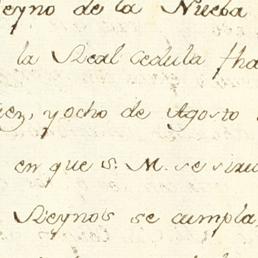 Reyno de la Nueba
la Real cedula fha
diez, y ocho de Agosto
en que S. M. se sirv
Reynos se cumpla